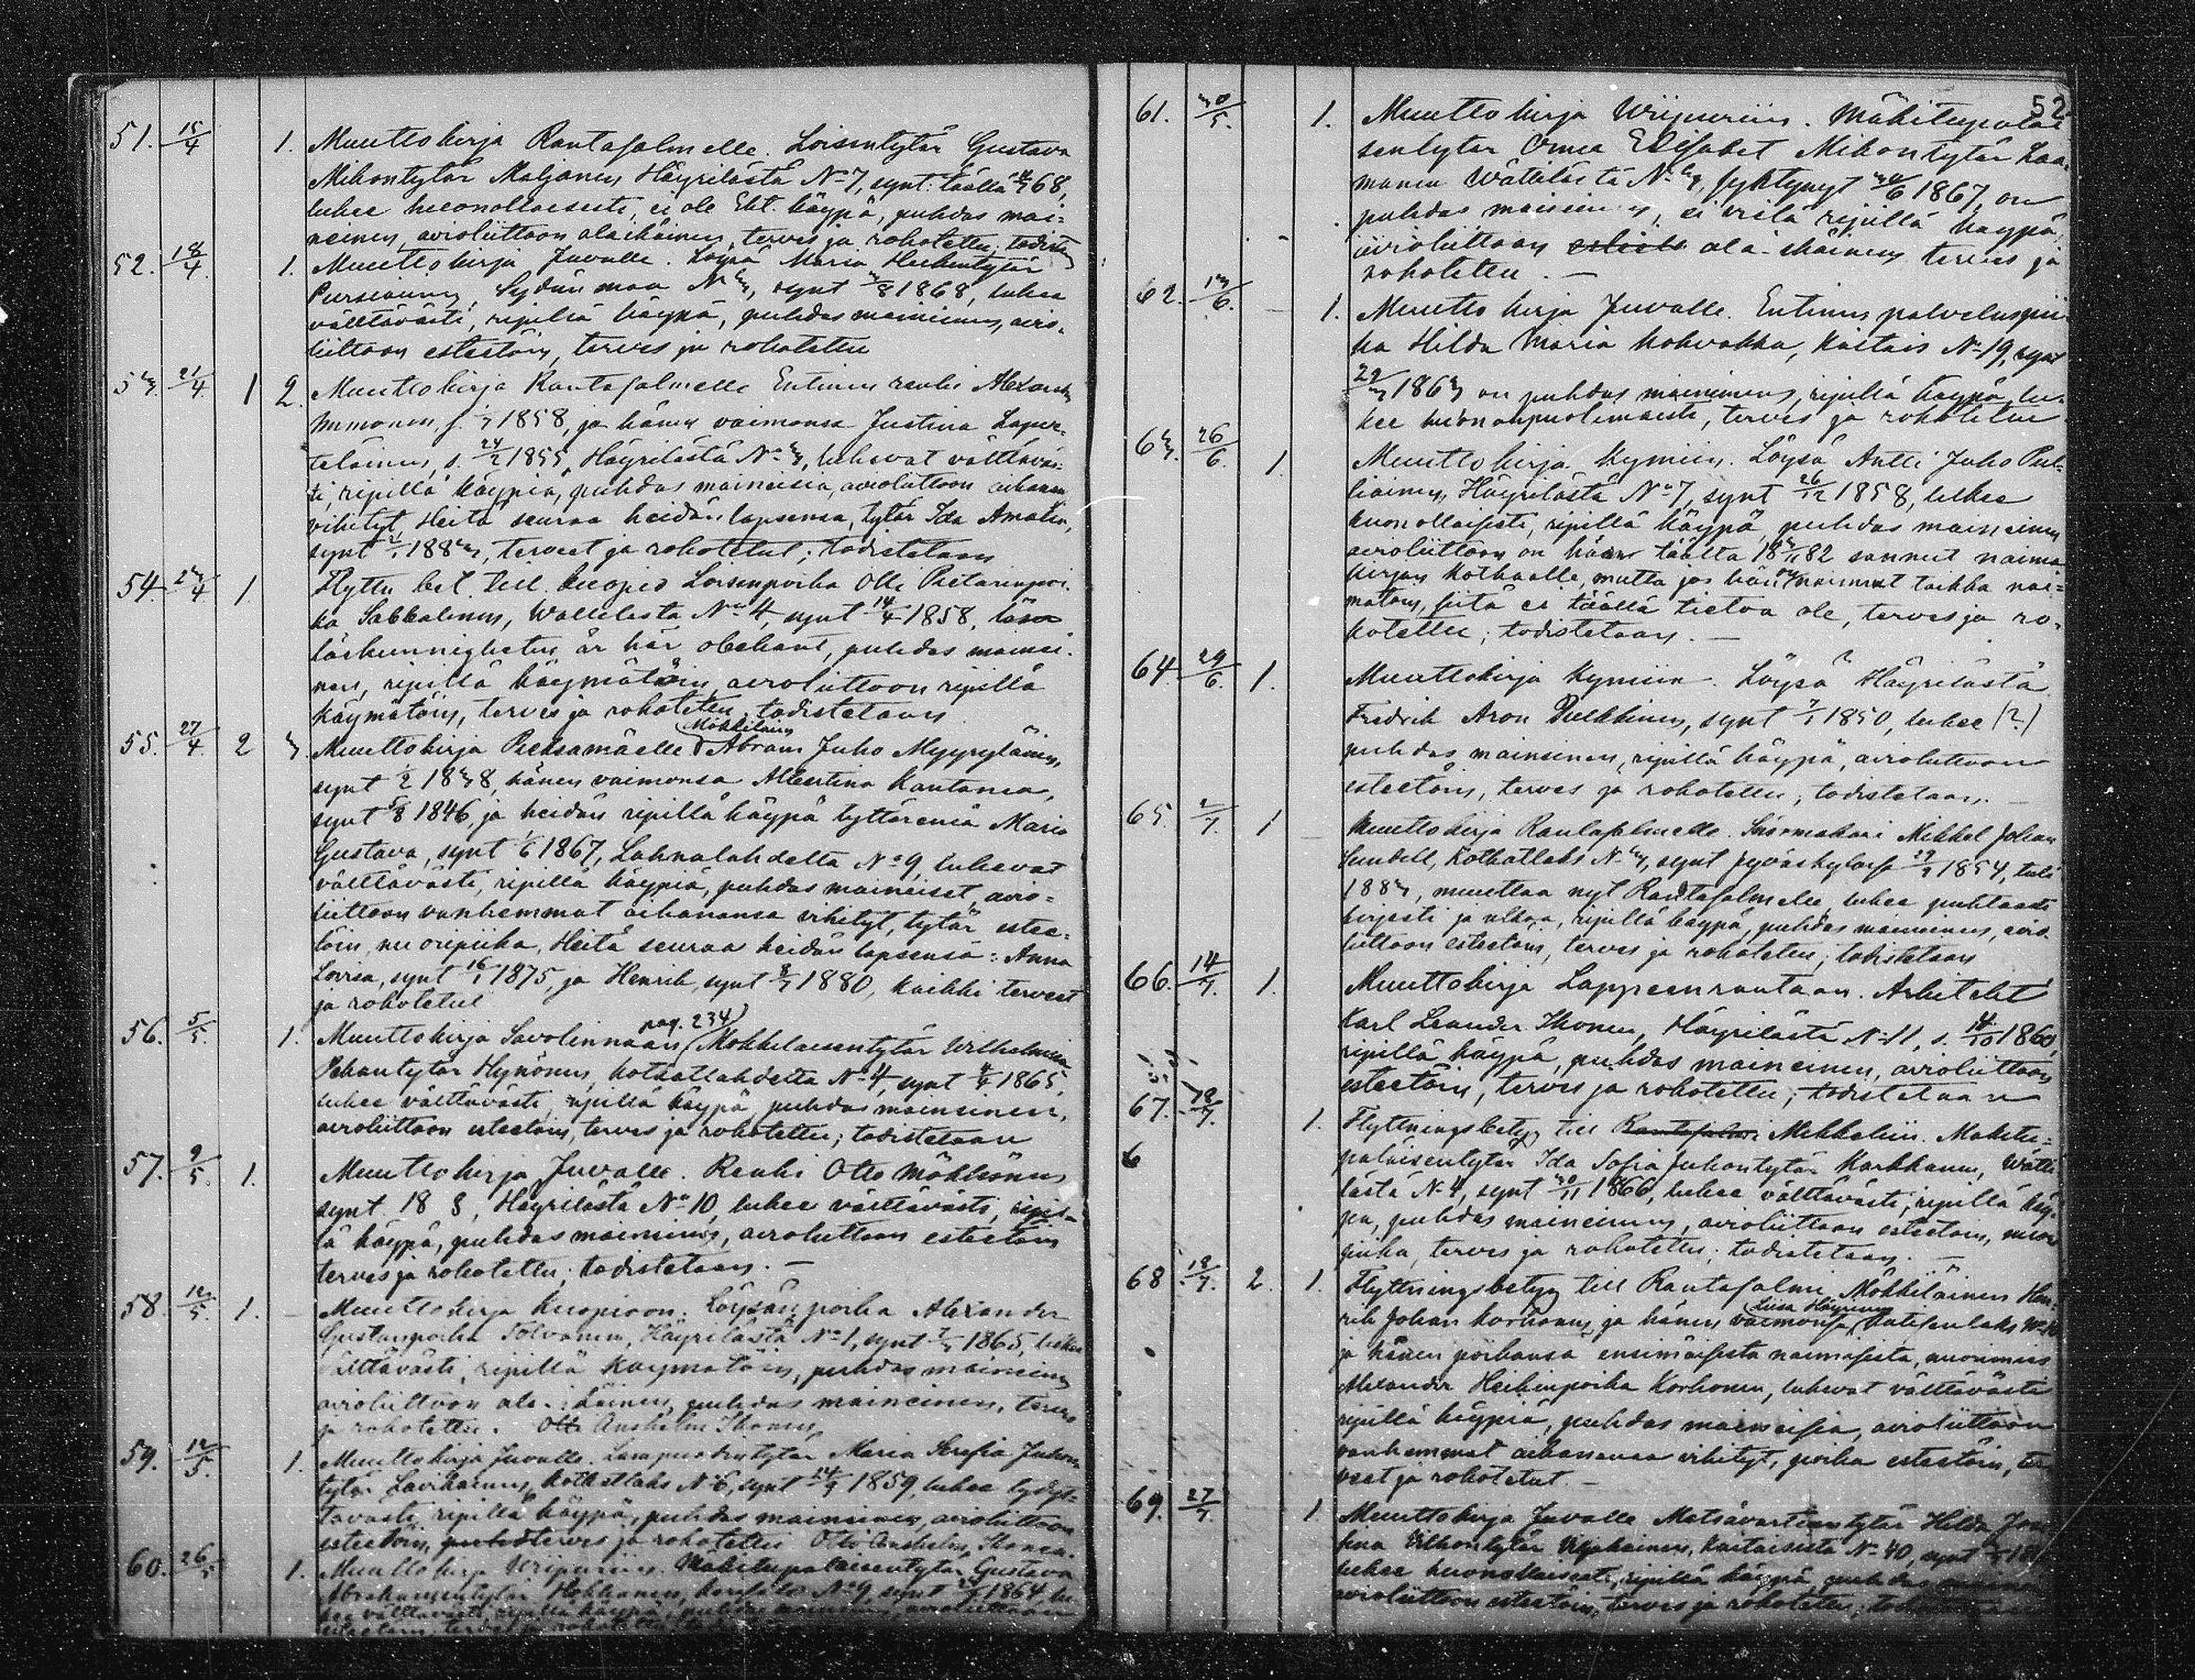 51. 15/4 1. Muuttokirja Rantasalmelle. Loisentytär Gustava
Mikontytär Maljanen Häyrilästä No 7, synt. täällä 68,
lukee huonollaisesti, ei ole Eht. käypä, puhdas mai-
neinen, avioliittoon alaikäinen, terves ja rokotettu; todistetaan
52. 18/4. 1. Muuttokirja Juvalle. Löysä Maria Heikintytär
Pursiainen, Sydänmaa No 3, synt /8 1868, lukee
välttävästi, ripillä käypä, puhdas maineinen, avio-
liittoon esteetöin, terves ja rokotettu
53. 21/4. 1 2. Muuttokirja Rantasalmelle Entinen renki Alexander
Immonen, s. 1858, ja hänen vaimonsa Justina Lapve-
teläinen, s. 24/2 1855, Häyrilästä No 3, lukevat välttäväs-
ti, ripillä käypiä, puhdas maineisia, avioliittoon aikanan
vihityt, Heitä seuraa heidän lapsensa, tytär Ida Amalia,
synt 1883, terveet ja rokotetut; todistetaan
54. 23/4 1. Flyttn bet. till Kuopio Loisenpoika Olli Pietarinpoi-
ka Sabbalinen, Wattilasta No 4, synt 14/4 1858,
läskunnigheten är här obekant, puhdas mainei-
nen, ripillä käymätöin, avioliittoon ripillä
käymätöin, terves ja rokotettu, todistetaan
55. 27/4. 2 3. Muuttokirja Pieksämäelle Mökkiläinen Abram Juho Myyryläinen,
synt 1/2 1838, hänen vaimonsa Albertina Kautanen,
synt 5/8 1846, ja heidän ripillä käypä tyttärensä Maria
Gustava, synt 1/6 1867, Lahnalahdelta No 9, lukevat
välttävästi, ripillä käypiä, puhdas maineiset, avio-
liittoon vanhemmat aikanansa vihityt, tytär estee-
töin, nuoripiika, Heitä seuraa heidän lapsensa: Anna
Lovisa, synt 16/1 1875, ja Henrik, synt 8/7 1880, kaikki terveet
ja rokotetut
56. 5/5. 1. Muuttokirja Savolinnaan (pag. 234) Mökkilaisentytär Wilhelmina
Pekantytär Hynönen, Kotkatlahdelta No 4, synt 1865,
lukee välttävästi, ripillä käypä, puhdas maineinen,
avioliittoon esteetöin, terves ja rokotettu; todistetaan
57. 9/5. 1. Muuttokirja Juvalle. Renki Otto Möhkönen
synt. 18 8, Häyrilästä No 10, lukee välttävästi, ripil-
lä käypä, puhdas maineinen, avioliittoon esteetöin
terves ja rokotettu; todistetaan. —
58. 12/5. 1. — Muuttokirja Kuopioon. Löysän poika Alexander
Gustavpoika Tolvanen, Häyrilästä No 1, synt 1865, lukee
välttävästi, ripillä käymätöin, puhdas maineinen
avioliittoon ala-ikäinen, puhdas maineinen, terves
ja rokotettu. Otto Anshelm Ihonen,
59. 12/5. 1. Muuttokirja Juvalle. Lampuodintytär Maria Serafia Juhon-
tytär Lavikainen, Kotkatlaks No 6, synt 24/7 1859, lukee tydyt-
tävästi, ripillä käypä, puhdas maineinen, avioliittoon
esteetöin, terves ja rokotettu Otto Anshelm Ihonen.
60. 26/5 1. Muuttokirja Wiipuriin. Mäkitupalaisentytär Gustava
Abrahamintytär Hokkanen, No 9, synt 1864, lu-
kee välttävästi, ripillä käypä, puhdas maineinen, avioliittoon
esteetöin, terves ja rokotettu
52.
61. 30/5. 1. Muuttokirja Wiipuriin. Mäkitupalai-
sentytär Anna Elisabet Mikontytär Laa-
manen Wättilästä No 3, syntynyt 30/6 1867, on
puhdas maineinen, ei vielä ripillä käypä,
avioliittoon ala-ikäinen terves ja
rokotettu. —
62. 13/6. — 1. Muuttokirja Juvalle. Entinen palveluspii-
ka Hilda Maria Kohvakka, Kaitais No 19, synt
29/3 1863 on puhdas maineinen, ripillä käypä, lu-
kee huononpuolimaisesti, terves ja rokotettu
63. 26/6. 1 Muuttokirja Kymiin. Löysä Antti Juho Pul-
liainen, Häyrilästä No 7, synt 26/12 1858, lukee
huonollaisesti, ripillä käypä, puhdas maineinen
avioliittoon on hään täältä 18 3/1 82 saanut naima-
kirjan Kotkaalle, mutta jos hän on nainut taikka nai-
matoin, siitä ei täällä tietoa ole, terves ja ro-
kotettu; todistetaan. —
64. 29/6. 1. Muuttokirja Kymiin. Löysä Häyrilästä
Fredrik Aron Pulkkinen, synt 7/1 1850, lukee (?)
puhdas maineinen, ripillä käypä, avioliittoon
esteetöin, terves ja rokotettu; todistetaan. —
65. 2/7. 1 — Muuttokirja Rantasalmelle. Snörmakari Mikkel Johan
Sundell, Kotkatlaks No 3, synt Jyväskylässä 29/7 1854, tuli
1883, muuttaa nyt Rantasalmelle, lukee puhtaasti
kirjasti ja ulkoa, ripillä käypä, puhdas maineinen, avio-
liittoon esteetöin, terves ja rokotettu; todistetaan
66. 14/7. 1. Muuttokirja Lappeenrantaan. Arkitekt
Karl Leander Ihonen, Häyrilästä No 11, s. 14/10 1860,
ripillä käypä, puhdas maineinen, avioliittoon
esteetöin, terves ja rokotettu; todistetaan
67. 18/7. 1. Flyttningsbetyg till Rantasalmi Mikkeliin. Mäkitu-
palaisentytär Ida Sofia Juhontytär Karkkanen, Wätti-
lästä No 4, synt 30/11 1866, lukee välttävästi, ripillä käy-
pä, puhdas maineinen, avioliittoon esteetöin, nuori
piika, terves ja rokotettu; todistetaan. —
6
68 18/7. 2. 1. Flyttningsbetyg till Rantasalmi Mökkiläinen Hen-
rik Johan Korhonen, ja hänen vaimonsa Liisa Häyrinen
ja hänen poikansa ensimäisestä naimisesta, nuorimies
Alexander Heikinpoika Korhonen, lukevat välttävästi
ripillä käypiä, puhdas maineisia, avioliittoon
vanhemmat aikananaa vihityt, poika esteetöin, ter-
veet ja rokotetut. —
69. 27/7. 1 Muuttokirja Juvalle Metsävartiantytär Hilda Jose-
fina Vilhontytär Kaitaisista No 40, synt
lukee huonollaisesti, ripillä käypä, puhdas
avioliittoon esteetöin, terves ja rokotettu;